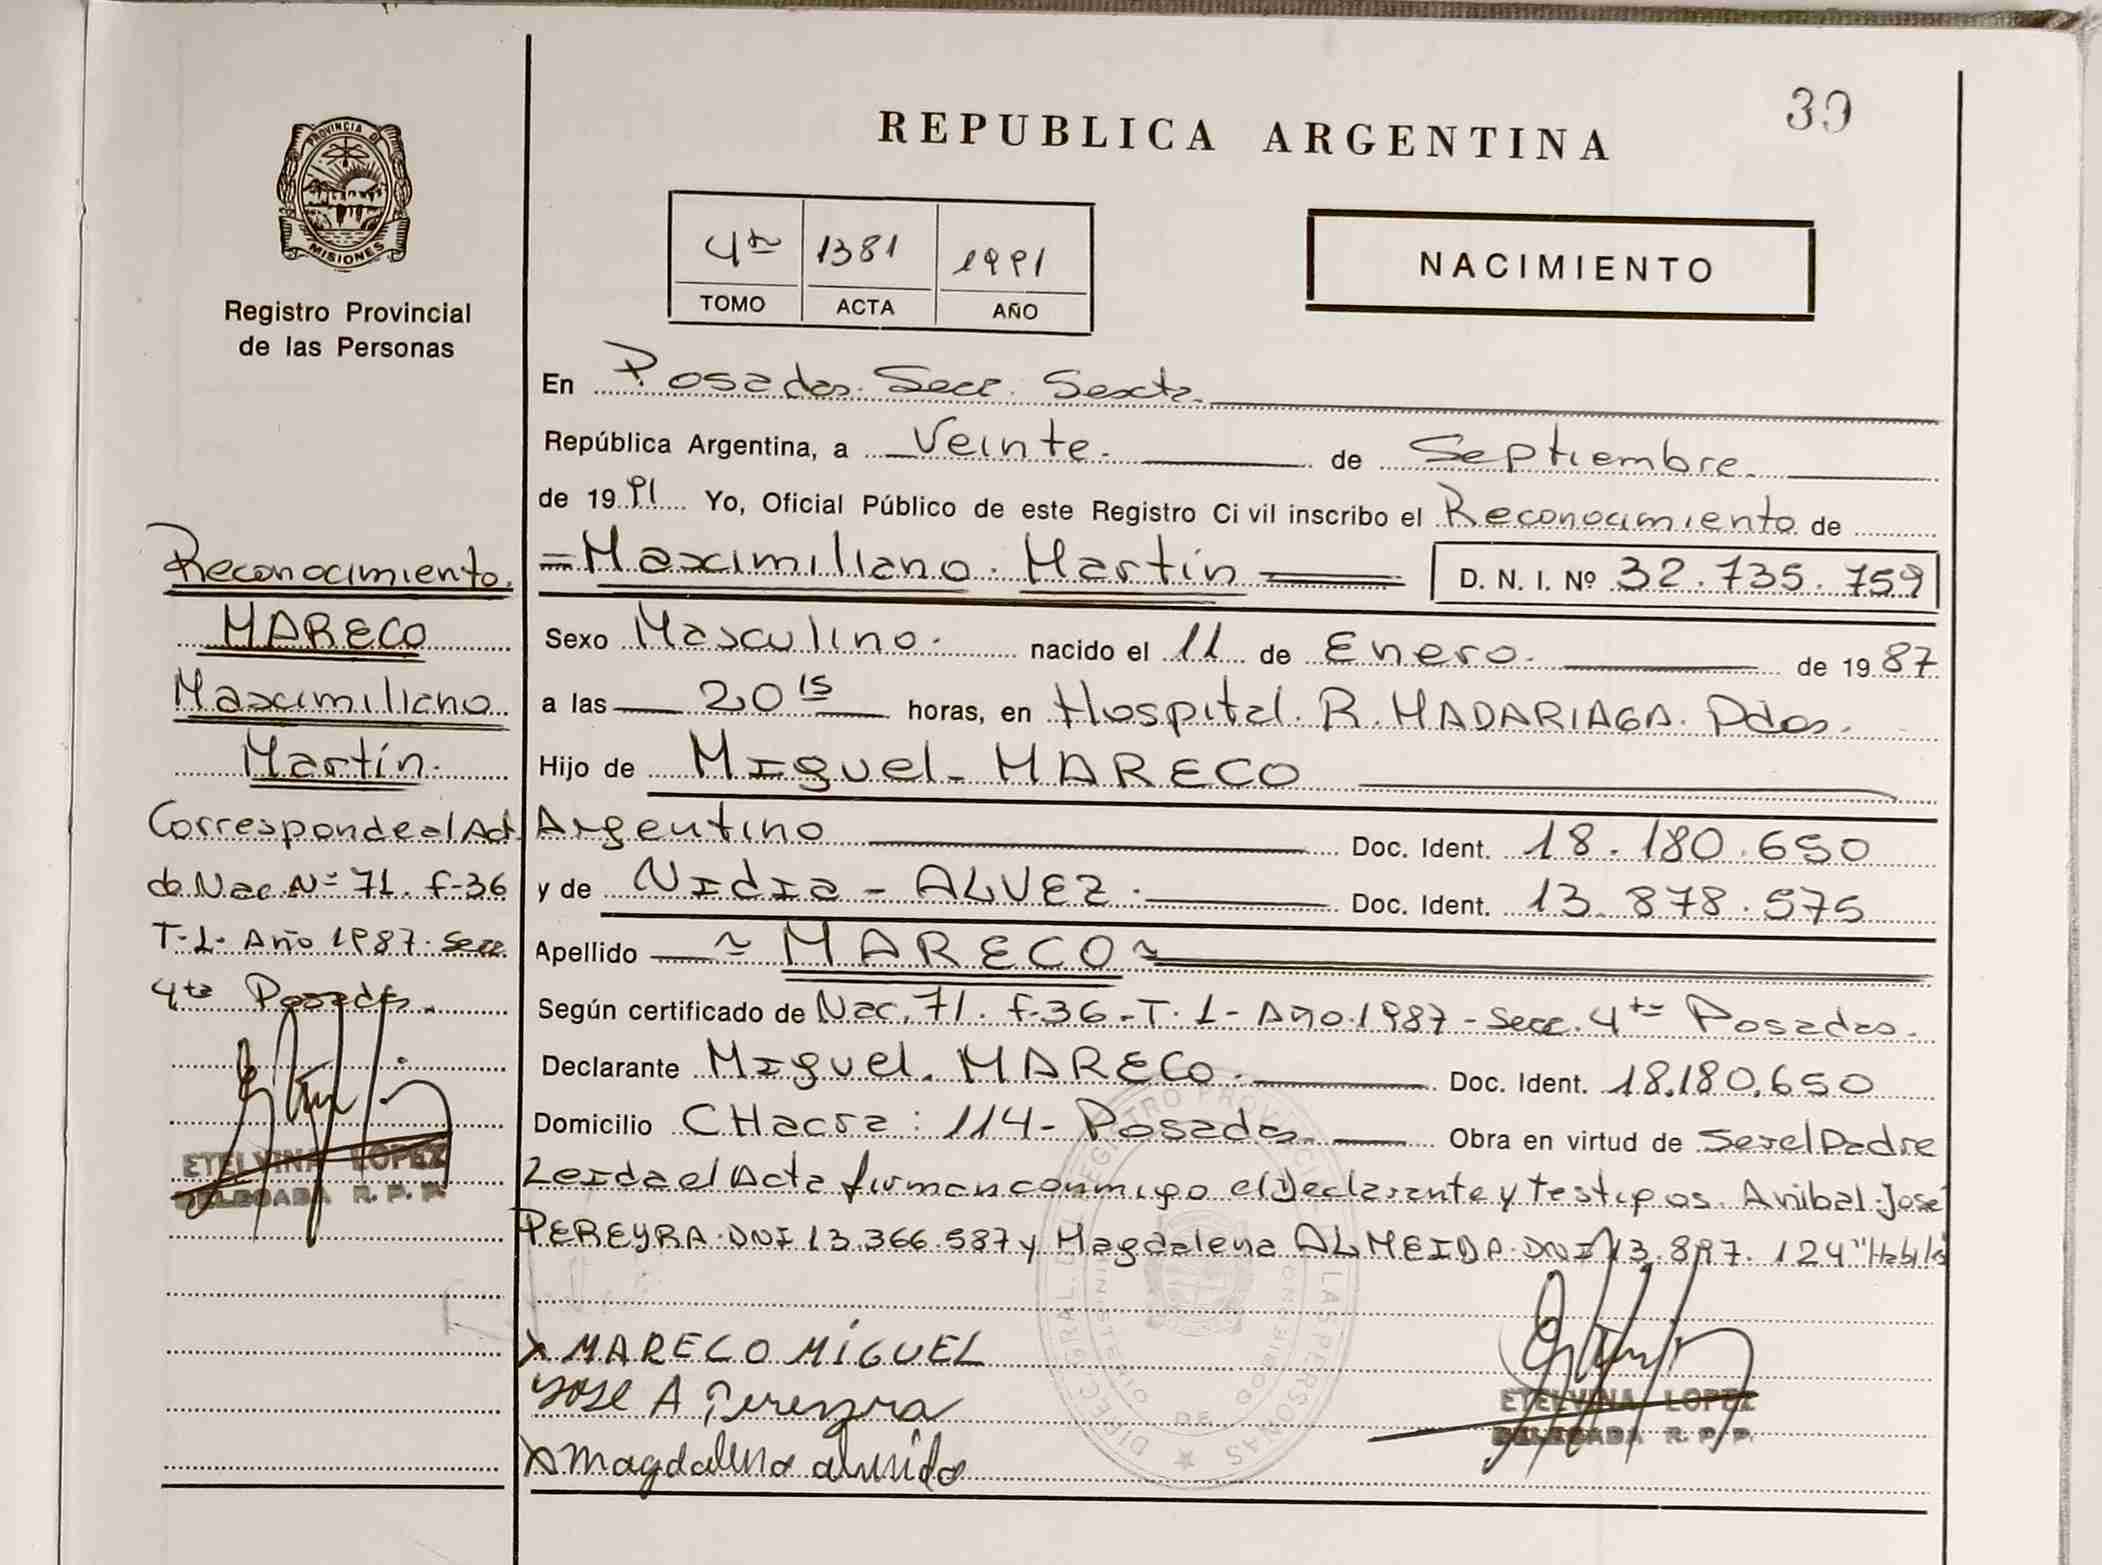 39
PROVINCIA DE
MISIONES
Registro Provincial
de las Personas
Reconocimiento.
MARECO
Maximiliano
Martín.
Corresponde al Act.
de Nac. Nº 71. f-36
T-1- Año 1987- Secc.
4ta Posadas.
ETELVINA LOPEZ
DELEGADA R. P. P.
REPUBLICA ARGENTINA
4to 1381 1991
TOMO ACTA AÑO
NACIMIENTO
En Posadas. Secc. Sexta.
República Argentina, a Veinte. de Septiembre.
de 1991 Yo, Oficial Público de este Registro Ci vil inscribo el Reconocimiento de
=Maximiliano. Martín D. N. I. Nº 32.735.759
Sexo Masculino. nacido el 11 de Enero. de 1987
a las 20 15 horas, en Hospital. R. MADARIAGA. Pdas.
Hijo de Miguel- MARECO
Argentino Doc. Ident. 18.180.650
y de Nidia - ALVEZ. Doc. Ident. 13.878.575
Apellido ~ MARECO ~
Según certificado de Nac. 71. f-36-T.1- Año.1987- Secc. 4ta Posadas.
Declarante Miguel. MARECO. Doc. Ident. 18.180.650
Domicilio CHacra: 114- Posadas. Obra en virtud de Ser el Padre
Leida el Acta firman conmigo el Declarante y testigos. Anibal José
PEREYRA. DNI 13.366.587 y Magdalena ALMEIDA. DNI 13.897.124 "Habiles
X MARECO MIGUEL
JOSE A Pereyra
X Magdalena almida
ETELVINA LOPEZ
DELEGADA R. P. P.
DIREC. GRAL. DEL REGISTRO PROVINCIAL DE LAS PERSONAS
MINISTERIO DE GOBIERNO